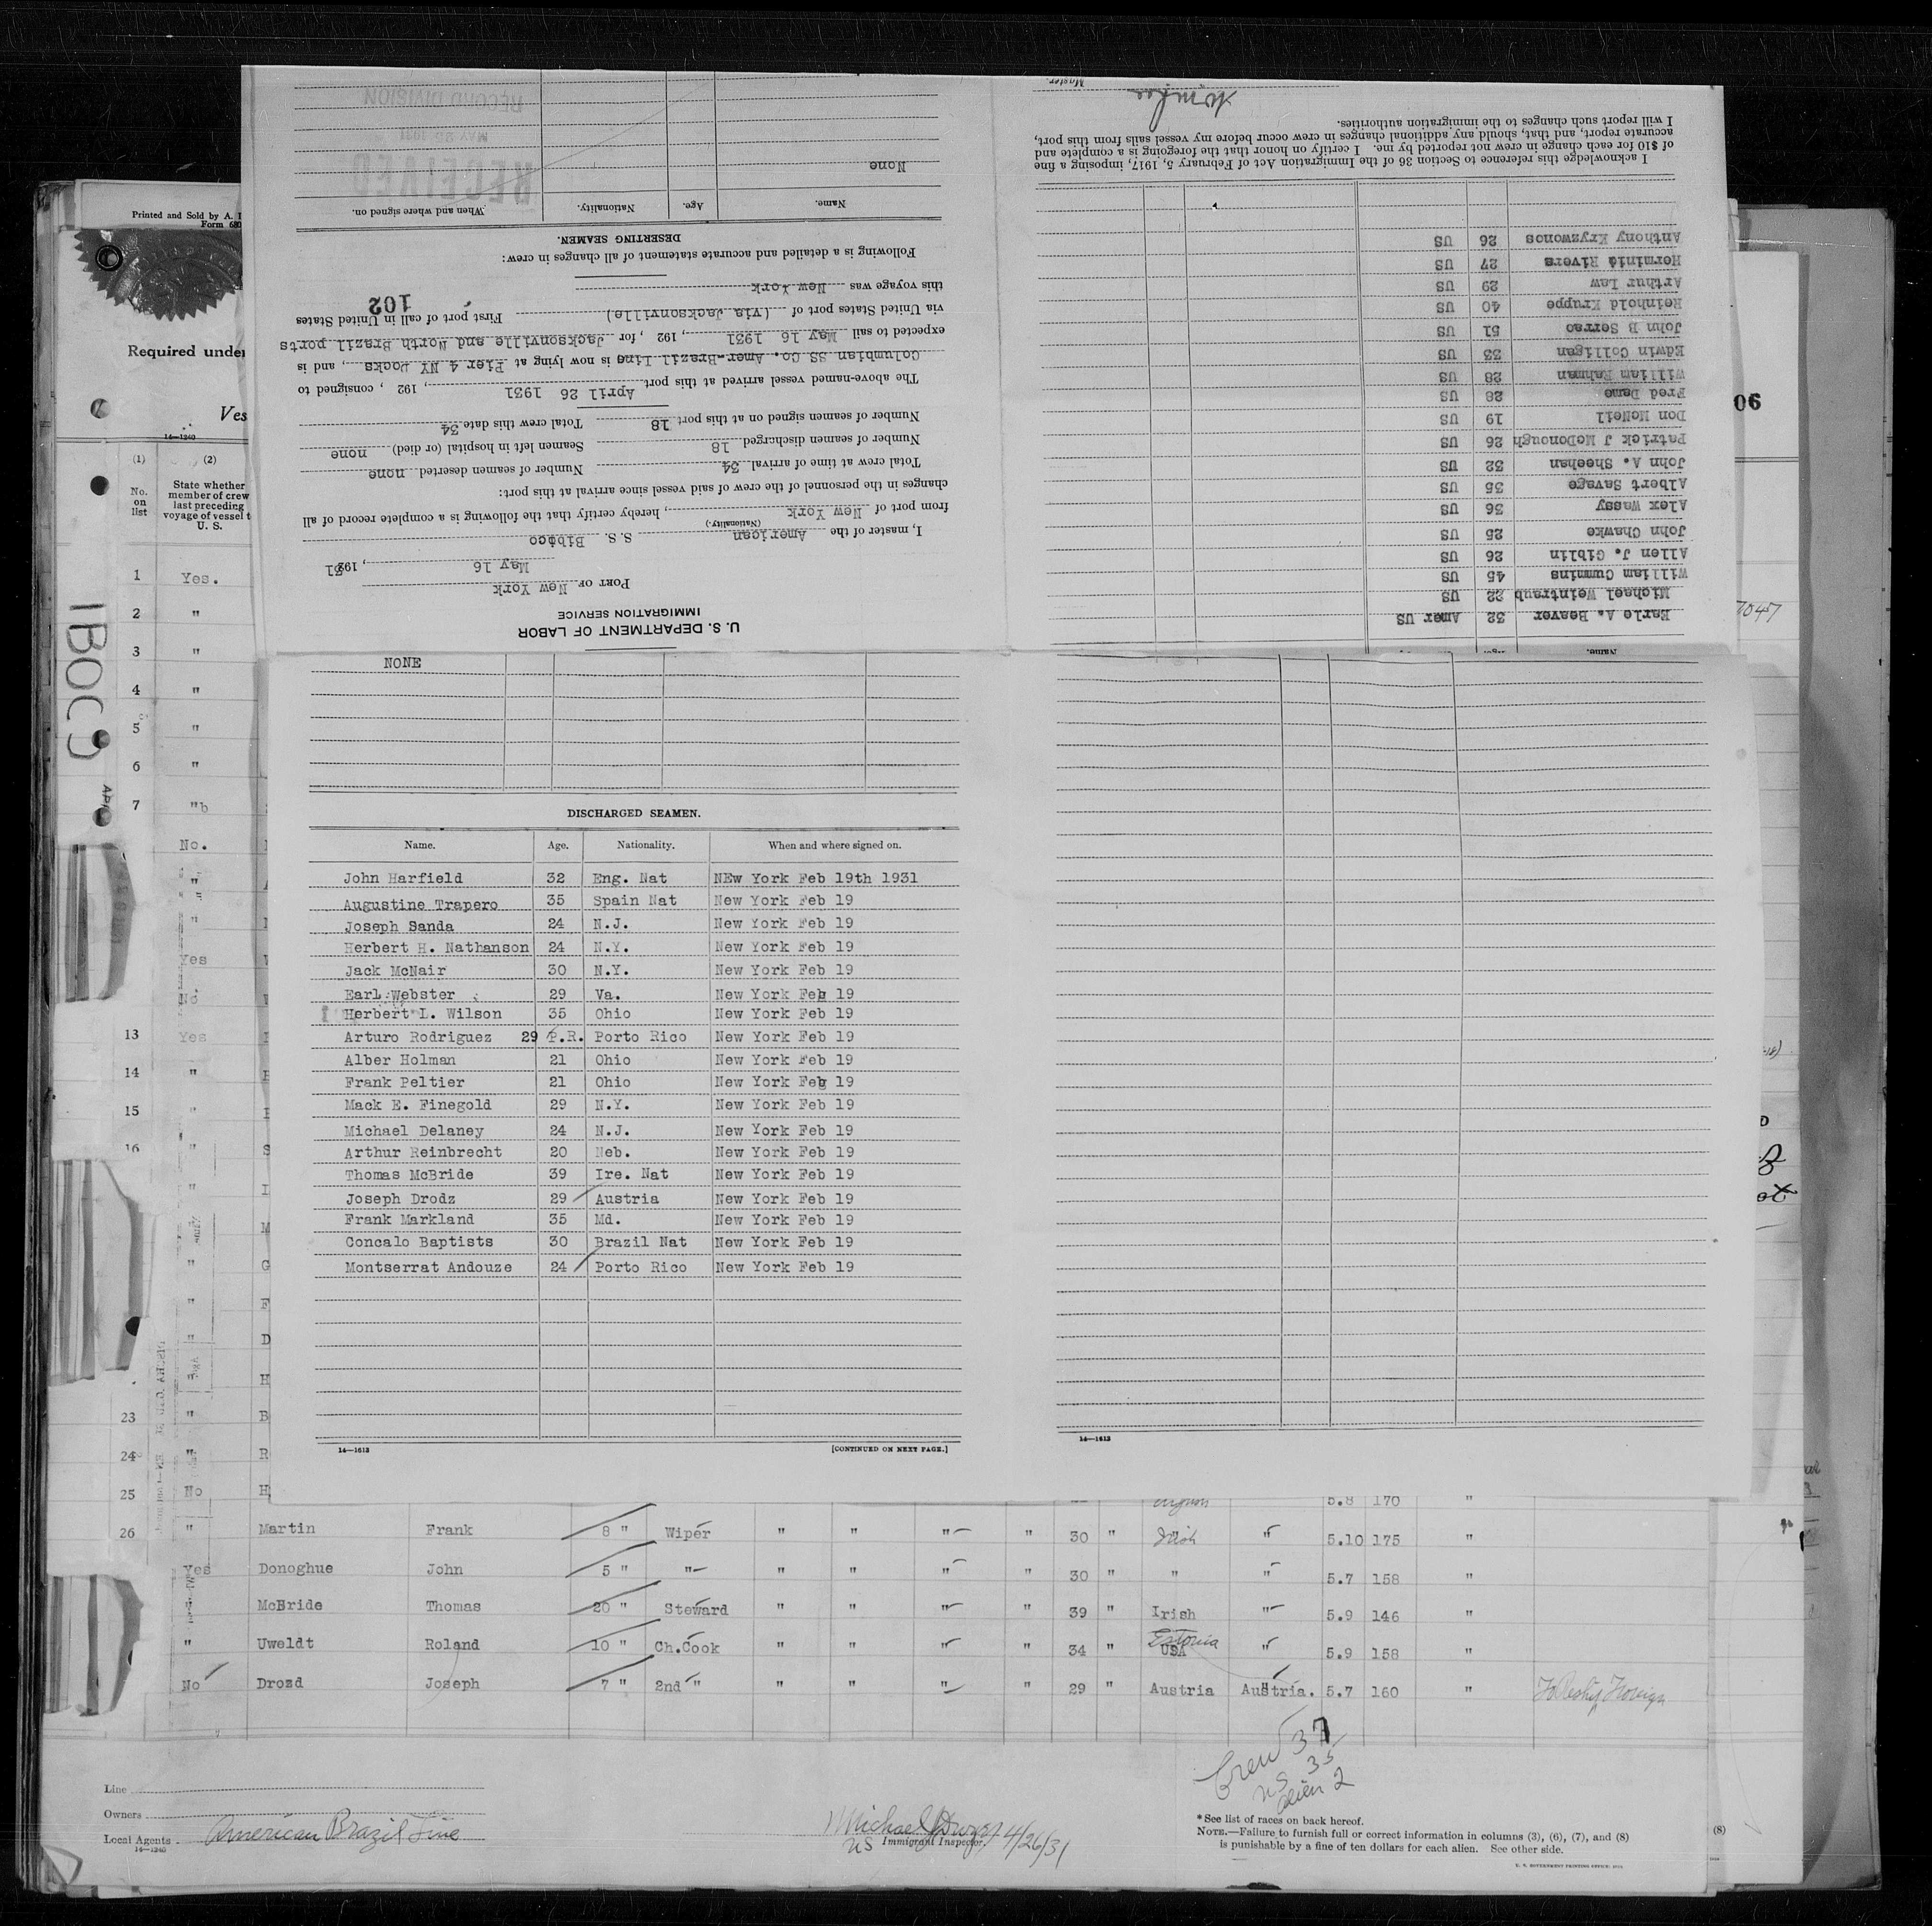 U. S. DEPARTMENT OF LABOR
IMMIGRATION SERVICE
PORT OF New York
May 16, 1931
I, master of the American S. S. Bibbco
(Nationality.)
from port of New York, hereby certify that the following is a complete record of all
changes in the personnel of the crew of said vessel since arrival at this port:
Total crew at time of arrival 34 Number of seamen deserted none
Number of seamen discharged 18 Seamen left in hospital (or died) none
Number of seamen signed on at this port 18 Total crew this date 34
The above-named vessel arrived at this port April 26 1931, 192 , consigned to
Columbian SS Co. Amer-Brazil Line is now lying at Pier 4 NY Docks, and is
expected to sail May 16 1931, 192 , for Jacksonville and North Brazil ports
via United States port of (via Jacksonville) First port of call in United States
this voyage was New York 102
Following is a detailed and accurate statement of all changes in crew:
DESERTING SEAMEN.
Name. Age. Nationality. When and where signed on.
None
RECEIVED
RECORD DIVISION
Name.
Earle A. Beaver 32 Amer US
Michael Weintraub 22 US
William Cummins 45 US
Allen J. Giblin 26 US
John Chawke 25 US
Alex Wassy 36 US
Albert Savage 35 US
John A. Sheehan 32 US
Patrick J McDonough 26 US
Don McNeil 19 US
Fred Dame 28 US
William Rahman 28 US
Edwin Colligan 33 US
John B Serrao 51 US
Reinhold Kruppe 40 US
Arthur Law 29 US
Herminia Rivers 27 US
Anthony Kryzwonos 26 US
I acknowledge this reference to Section 36 of the Immigration Act of February 5, 1917, imposing a fine
of $10 for each change in crew not reported by me. I certify on honor that the foregoing is a complete and
accurate report, and that, should any additional changes in crew occur before my vessel sails from this port,
I will report such changes to the immigration authorities.
Master.
NONE
DISCHARGED SEAMEN.
Name. Age. Nationality. When and where signed on.
John Harfield 32 Eng. Nat NEw York Feb 19th 1931
Augustine Trapero 35 Spain Nat New York Feb 19
Joseph Sanda 24 N.J. New York Feb 19
Herbert H. Nathanson 24 N.Y. New York Feb 19
Jack McNair 30 N.Y. New York Feb 19
Earl Webster 29 Va. New York Feb 19
Herbert L. Wilson 35 Ohio New York Feb 19
Arturo Rodriguez 29 P.R. Porto Rico New York Feb 19
Alber Holman 21 Ohio New York Feb 19
Frank Peltier 21 Ohio New York Feb 19
Mack E. Finegold 29 N.Y. New York Feb 19
Michael Delaney 24 N.J. New York Feb 19
Arthur Reinbrecht 20 Neb. New York Feb 19
Thomas McBride 39 Ire. Nat New York Feb 19
Joseph Drodz 29 Austria New York Feb 19
Frank Markland 35 Md. New York Feb 19
Concalo Baptists 30 Brazil Nat New York Feb 19
Montserrat Andouze 24 Porto Rico New York Feb 19
14—1613 [CONTINUED ON NEXT PAGE.]
14—1613
Printed and Sold by A.
Form 680
Required under
Ves
14—1240
(1) (2)
No. on list
State whether
member of crew
last preceding
voyage of vessel t
U. S.
1 Yes.
2 "
3 "
4 "
5 "
6 "
7 "b
No.
"
"
Yes
No.
13 Yes
14 "
15 "
16 "
23 "
24 "
25 No H 5.8 170 "
26 " Martin Frank 8 " Wiper " " " " 30 " Irish " 5.10 175 "
Yes Donoghue John 5 " " " " " " 30 " " " 5.7 158 "
" McBride Thomas 20 " Steward " " " " 39 " Irish " 5.9 146 "
" Uweldt Roland 10 " Ch.Cook " " " " 34 " USA Estonia " 5.9 158 "
No Drozd Joseph 7 " 2nd " " " " " 29 " Austria Austria. 5.7 160 " Foreign
Crew 37
US 35
alien 2
Line
Owners
Local Agents American Brazil Line
14—1240
Michael Dwyer 4/26/31
US Immigrant Inspector.
*See list of races on back hereof.
NOTE.—Failure to furnish full or correct information in columns (3), (6), (7), and (8)
is punishable by a fine of ten dollars for each alien. See other side.
(8)
06
7047